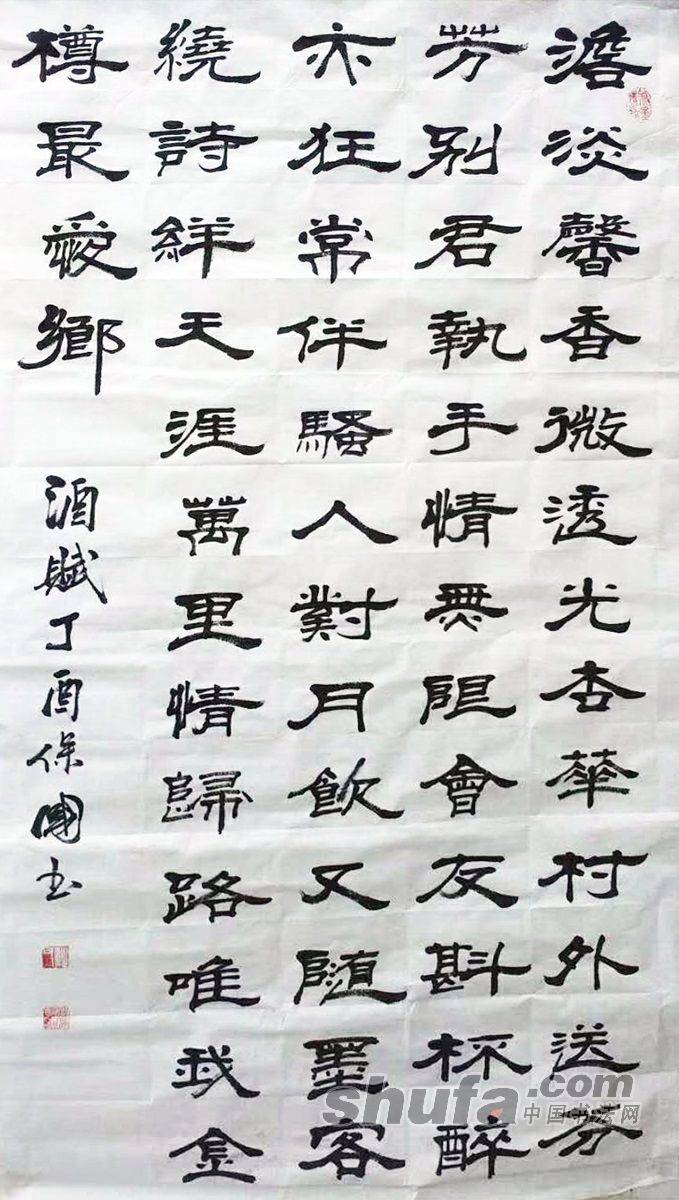 澹淡馨香微透光杏華村外送芬
芳别君執手情無胆會友斟杯醉
亦狂常伴騷人對月飲又随墨客
繞詩絴天涯萬里情歸路唯我金
樽最愛鄉
酒賦丁酉保國书
shufa.com
中国书法网